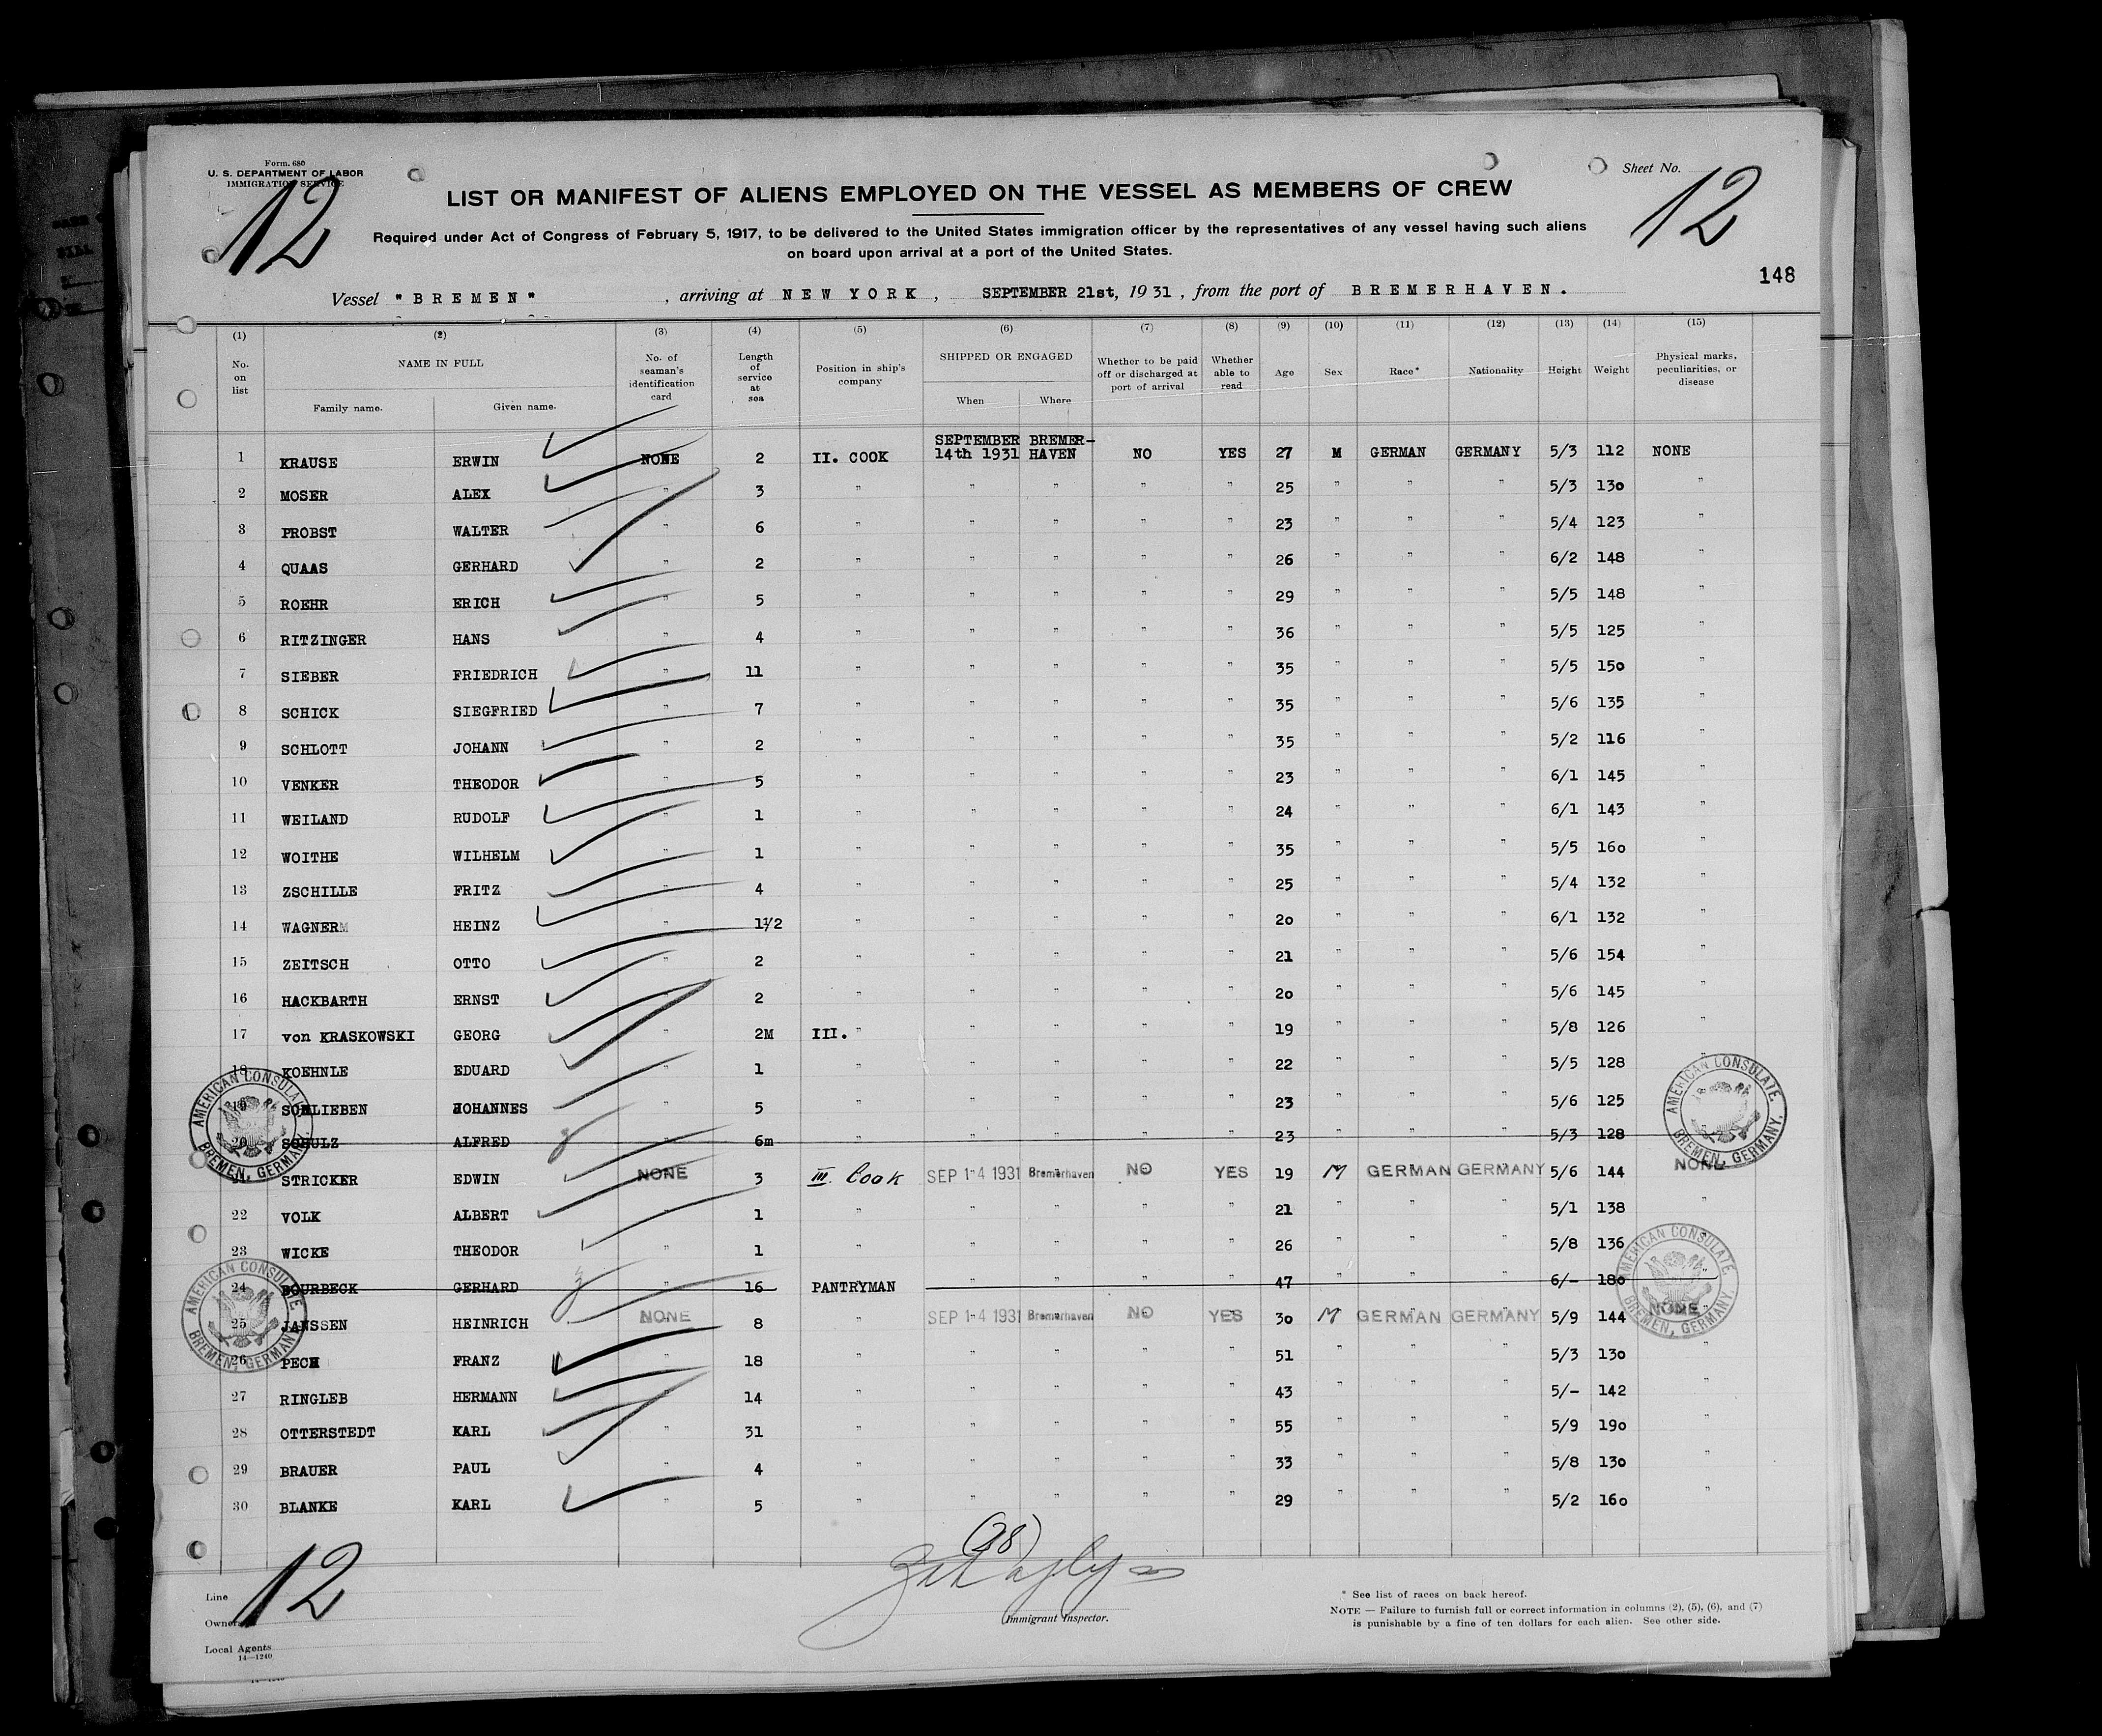 Form. 680
U. S. DEPARTMENT OF LABOR
IMMIGRATION SERVICE
12
Sheet No. 12
LIST OR MANIFEST OF ALIENS EMPLOYED ON THE VESSEL AS MEMBERS OF CREW
Required under Act of Congress of February 5, 1917, to be delivered to the United States immigration officer by the representatives of any vessel having such aliens
on board upon arrival at a port of the United States.
148
Vessel "BREMEN" , arriving at NEW YORK, SEPTEMBER 21st, 1931, from the port of BREMERHAVEN.
(1) (2) (3) (4) (5) (6) (7) (8) (9) (10) (11) (12) (13) (14) (15)
No. on list NAME IN FULL Family name. Given name. No. of seaman's identification card Length of service at sea Position in ship's company SHIPPED OR ENGAGED When Where Whether to be paid off or discharged at port of arrival Whether able to read Age Sex Race* Nationality Height Weight Physical marks, peculiarities, or disease
1 KRAUSE ERWIN NONE 2 II. COOK SEPTEMBER 14th 1931 BREMER-HAVEN NO YES 27 M GERMAN GERMANY 5/3 112 NONE
2 MOSER ALEX " 3 " " " " " 25 " " " 5/3 130 "
3 PROBST WALTER " 6 " " " " " 23 " " " 5/4 123 "
4 QUAAS GERHARD " 2 " " " " " 26 " " " 6/2 148 "
5 ROEHR ERICH " 5 " " " " " 29 " " " 5/5 148 "
6 RITZINGER HANS " 4 " " " " " 36 " " " 5/5 125 "
7 SIEBER FRIEDRICH " 11 " " " " " 35 " " " 5/5 150 "
8 SCHICK SIEGFRIED " 7 " " " " " 35 " " " 5/6 135 "
9 SCHLOTT JOHANN " 2 " " " " " 35 " " " 5/2 116 "
10 VENKER THEODOR " 5 " " " " " 23 " " " 6/1 145 "
11 WEILAND RUDOLF " 1 " " " " " 24 " " " 6/1 143 "
12 WOITHE WILHELM " 1 " " " " " 35 " " " 5/5 160 "
13 ZSCHILLE FRITZ " 4 " " " " " 25 " " " 5/4 132 "
14 WAGNER HEINZ " 1 1/2 " " " " " 20 " " " 6/1 132 "
15 ZEITSCH OTTO " 2 " " " " " 21 " " " 5/6 154 "
16 HACKBARTH ERNST " 2 " " " " " 20 " " " 5/6 145 "
17 von KRASKOWSKI GEORG " 2M III. " " " " " 19 " " " 5/8 126 "
18 KOEHNLE EDUARD " 1 " " " " " 22 " " " 5/5 128 "
19 SCHLIEBEN JOHANNES " 5 " " " " " 23 " " " 5/6 125 "
20 SCHULZ ALFRED " 6m " " " " " 23 " " " 5/3 128 "
STRICKER EDWIN NONE 3 III. Cook SEP 14 1931 Bremerhaven NO YES 19 M GERMAN GERMANY 5/6 144 NONE
22 VOLK ALBERT " 1 " " " " " 21 " " " 5/1 138 "
23 WICKE THEODOR " 1 " " " " " 26 " " " 5/8 136 "
24 BOURBECK GERHARD " 16 PANTRYMAN " " " " 47 " " " 6/- 180 "
25 JANSSEN HEINRICH NONE 8 " SEP 14 1931 Bremerhaven NO YES 30 M GERMAN GERMANY 5/9 144 NONE
26 PECH FRANZ " 18 " " " " " 51 " " " 5/3 130 "
27 RINGLEB HERMANN " 14 " " " " " 43 " " " 5/- 142 "
28 OTTERSTEDT KARL " 31 " " " " " 55 " " " 5/9 190 "
29 BRAUER PAUL " 4 " " " " " 33 " " " 5/8 130 "
30 BLANKE KARL " 5 " " " " " 29 " " " 5/2 160 "
AMERICAN CONSULATE, BREMEN, GERMANY.
AMERICAN CONSULATE, BREMEN, GERMANY.
AMERICAN CONSULATE, BREMEN, GERMANY.
AMERICAN CONSULATE, BREMEN, GERMANY.
(28)
Immigrant Inspector.
12
Line
Owners
Local Agents
14—1240
* See list of races on back hereof.
NOTE — Failure to furnish full or correct information in columns (2), (5), (6), and (7)
is punishable by a fine of ten dollars for each alien. See other side.